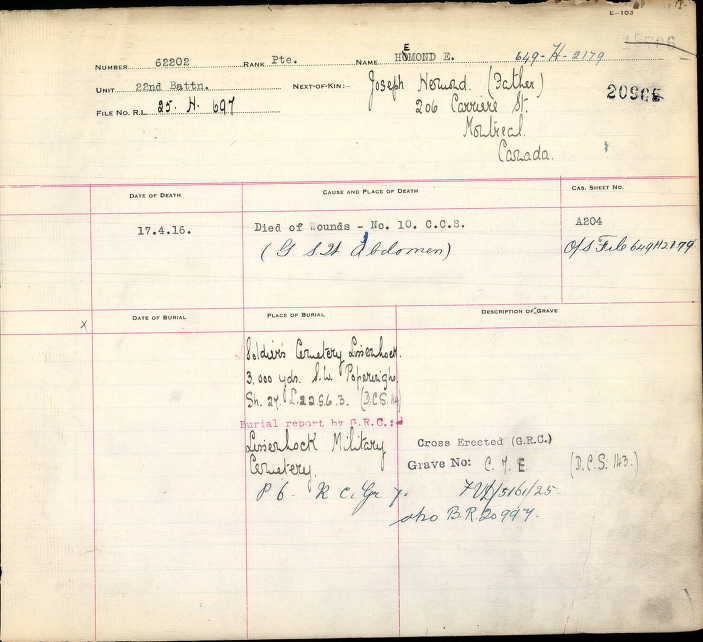 E-103
NUMBER 62202 RANK Pte. NAME HEMOND E. 649-H-2179
UNIT 22nd Battn. NEXT-OF-KIN:- Joseph Hemond. (Father)
FILE NO. R.L. 25. H. 697
206 Carriere St.
Montreal
Canada.
DATE OF DEATH CAUSE AND PLACE OF DEATH CAS. SHEET NO.
17.4.16. Died of Wounds - No. 10. C.C.S. A204
(G S W Abdomen) O/S File 649H2179
X DATE OF BURIAL PLACE OF BURIAL DESCRIPTION OF GRAVE
Soldiers Cemetery Lissenhoek.
3,000 yds. S.W. Poperinghe
Sh. 27. L.22.
Burial report by G.R.C.:-
Lissenhock Military
Cemetery.
Cross Erected (G.R.C.)
Grave No: C. 7. E (D.C.S. 143.)
P 6. R C. Gr 7.
also B.R. 20997.